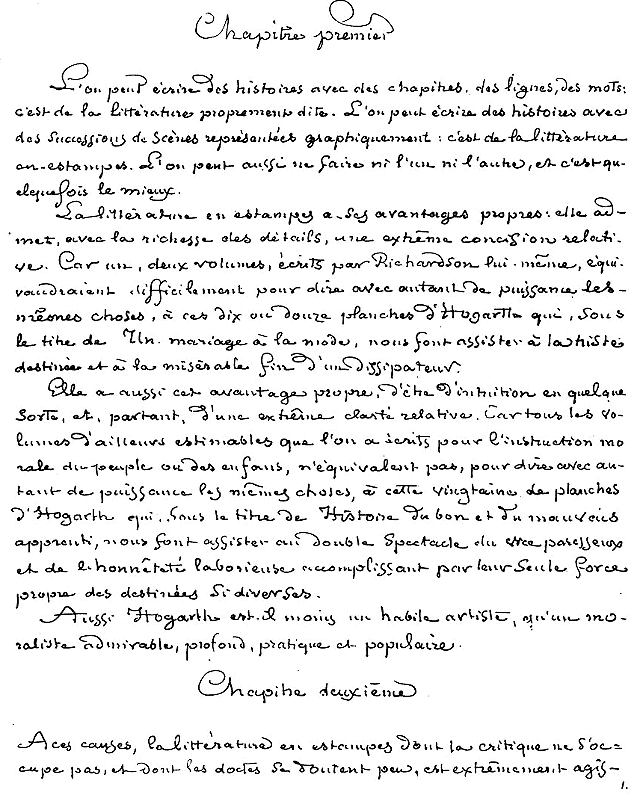 Chapitre premier
L'on peut écrire des histoires avec des chapitres, des lignes, des mots:
c'est de la littérature proprement dite. L'on peut écrire des histoires avec
des successions de scènes représentées graphiquement : c'est de la littérature
en-estampes. L'on peut aussi ne faire ni l'un ni l'autre, et c'est qu-
elquefois le mieux.
La littérature en estampes a ses avantages propres : elle ad-
met, avec la richesse des détails, une extrême concision relati-
ve. Car un, deux volumes, écrits par Richardson lui-même, équi-
vaudraient difficilement pour dire avec autant de puissance les-
mêmes choses, à ces dix ou douze planches d'Hogarth qui, sous
le titre de Un mariage à la mode, nous font assister à la triste
destinée et à la misérable fin d'un dissipateur.
Elle a aussi cet avantage propre, d'être d'intuition en quelque
sorte, et, partant, d'une extrême clarté relative. Car tous les vo-
lumes d'ailleurs estimables que l'on a écrits pour l'instruction mo
rale du peuple ou des enfans, n'équivalent pas, pour dire avec au-
tant de puissance les mêmes choses, à cette vingtaine de planches
d'Hogarth qui, sous le titre de Histoire du bon et du mauvais
apprenti, nous font assister au double spectacle du vice paresseux
et de l'honnêteté laborieuse accomplissant par leur seule force
propre des destinées si diverses.
Aussi Hogarth est-il moins un habile artiste, qu'un mo-
raliste admirable, profond, pratique et populaire.
Chapitre deuxième
A ces causes, la littérature en estampes dont la critique ne s'oc-
cupe pas, et dont les doctes se doutent peu, est extrêmement agis-